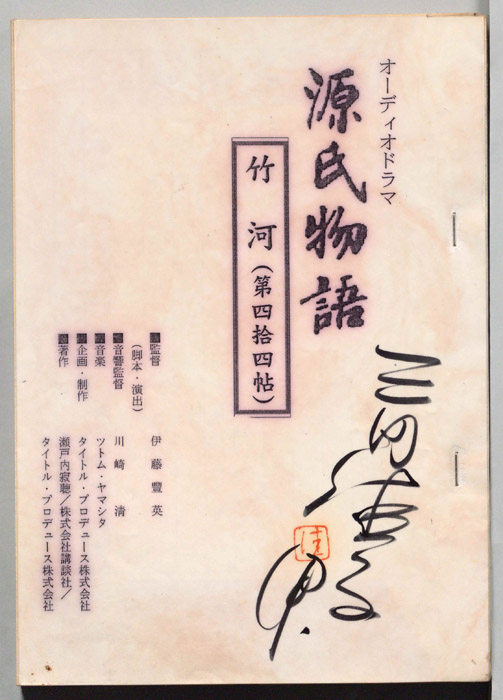 オーディオドラマ
源氏物語
竹河(第四拾四帖)
監督 伊藤豐英
(脚本・演出)
音響監督 川崎清
音楽 ツトム・ヤマシタ
企画・制作 タイトル・プロデュース株式会社
著作 瀬戸内寂聴/株式会社講談社/
タイトル・プロデュース株式会社